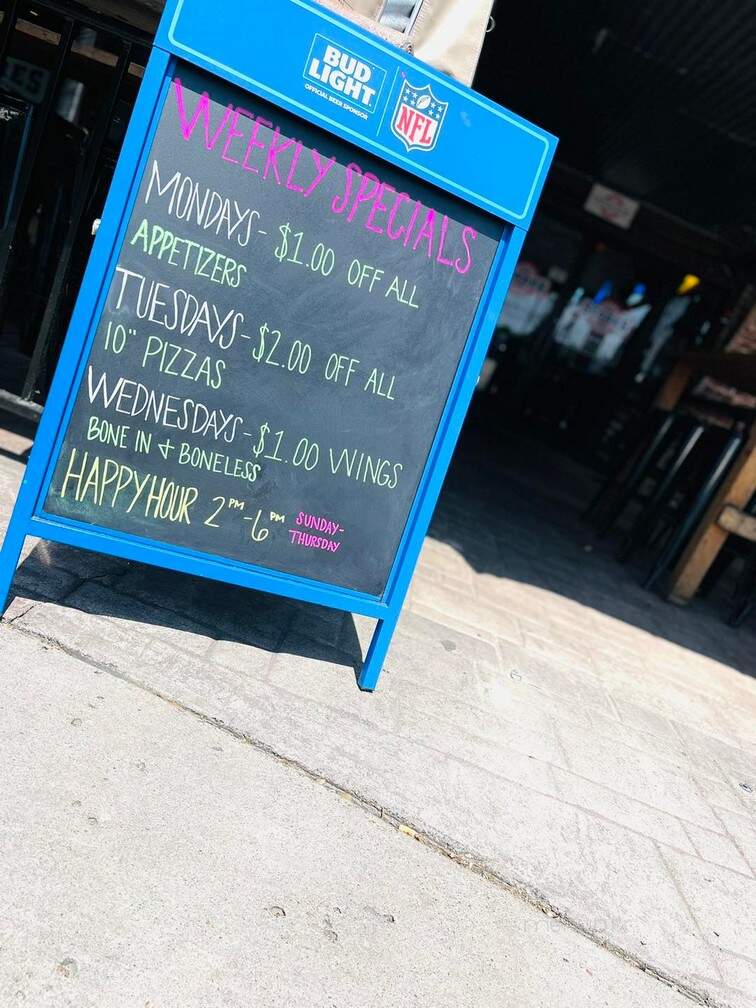 BUD
LIGHT
OFFICIAL BEER SPONSOR
NFL
WEEKLY SPECIALS
MONDAYS- $1.00 OFF ALL
APPETIZERS
TUESDAYS- $2.00 OFF ALL
10" PIZZAS
WEDNESDAYS- $1.00 WINGS
BONE IN & BONELESS
HAPPY HOUR 2PM-6PM SUNDAY-
THURSDAY